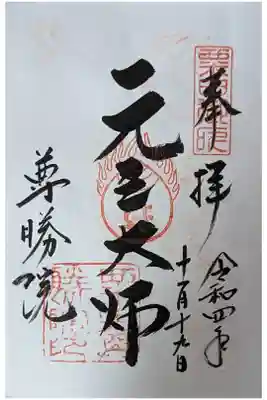 奉拝
令和四年
十一月十九日
元三大師
尊勝院